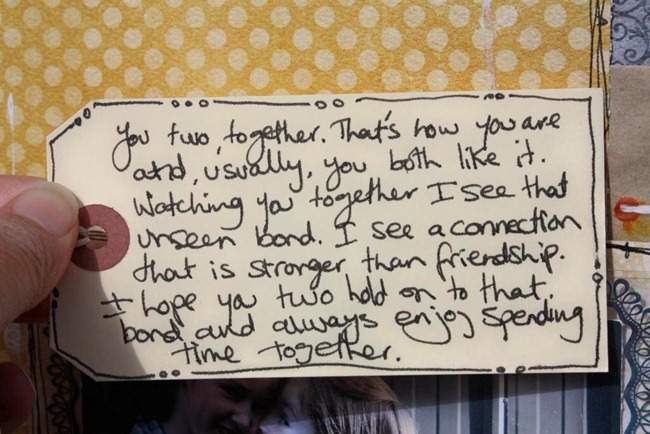 You two, together. That's how you are
and, usually, you both like it.
Watching you together I see that
unseen bond. I see a connection
that is stronger than friendship.
I hope you two hold on to that
bond and always enjoy spending
time together.